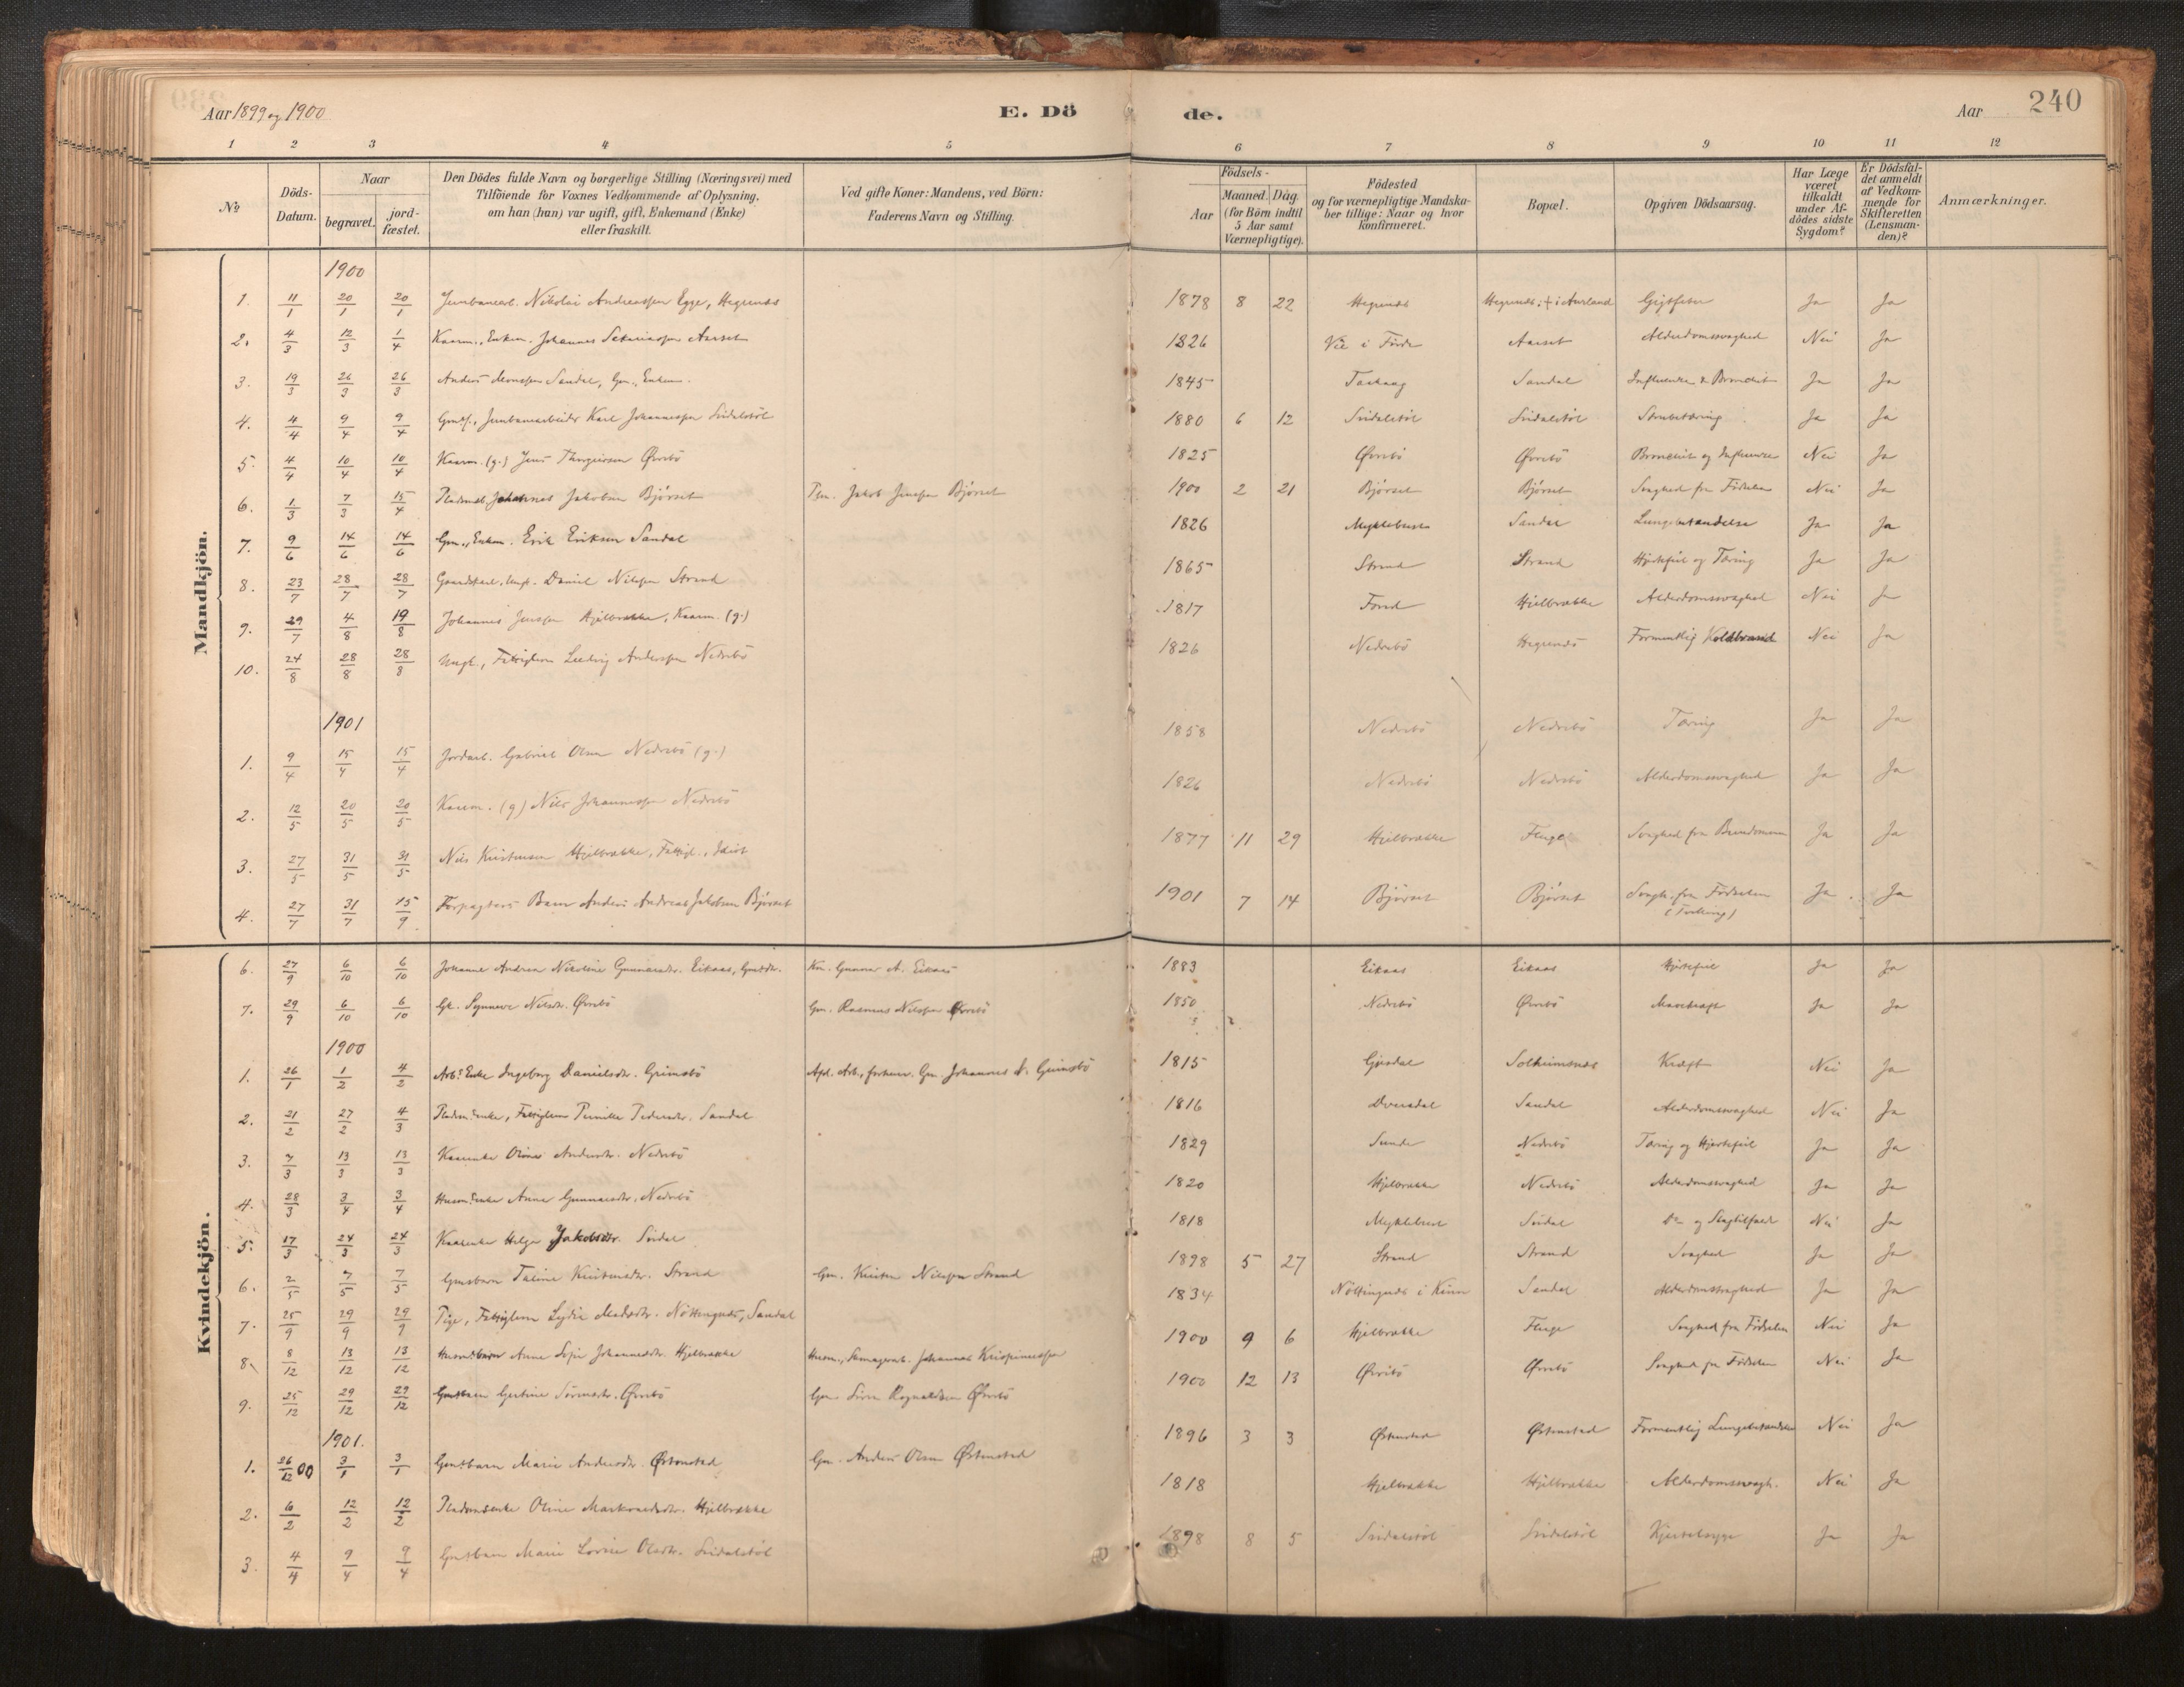 Aar 1899 og 1900
E. Dö
de.
Aar
240
1 2 3 4 5 6 7 8 9 10 11 12
No
Döds-Datum.
Naar
begravet.
jord-fæstet.
Den Dödes fulde Navn og borgerlige Stilling (Næringsvei) med
Tilföiende for Voxnes Vedkommende af Oplysning,
om han (hun) var ugift, gift, Enkemand (Enke)
eller fraskilt.
Ved gifte Koner: Mandens, ved Börn:
Faderens Navn og Stilling.
Födsels-
Aar
Maaned. Dag.
(for Börn indtil
5 Aar samt
Værnepligtige).
Födested
og for værnepligtige Mandska-
ber tillige: Naar og hvor
konfirmeret.
Bopæl.
Opgiven Dödsaarsag.
Har Læge
været
tilkaldt
under Af-
dödes sidste
Sygdom?
Er Dödsfal-
det anmeldt
af Vedkom-
mende for
Skifteretten
(Lensman-
den)?
Anmærkninger.
Mandkjön.
1900
1. 11/1 20/1 20/1 Jernbanearb. Nikolai Andreassen Egge, Hegrenæs 1878 8 22 Hegrenæs Hegrenæs; † i Aurland Gigtfeber Ja Ja
2. 4/3 12/3 1/4 Kaarm., Enkem. Johannes Sakariassen Aarset 1826 Vie i Förde Aarset Alderdomssvaghed Nei Ja
3. 19/3 26/3 26/3 Anders Monssen Sandal, Gm., Enkem. 1845 Sandal Influenza & Bronchit Ja Ja
4. 4/4 9/4 9/4 Jernbanearbeider Karl Johannessen 1880 6 12 Strubetæring Ja Ja
5. 4/4 10/4 10/4 Kaarm. (g.) Jens Øvrebö 1825 Øvrebö Øvrebö Bronchit og Influenza Nei Ja
6. 1/3 7/3 15/4 Johannes Jakobsen Bjørset Jakob Jensen Bjørset 1900 2 21 Bjørset Bjørset Svaghed fra Födselen Nei Ja
7. 9/6 14/6 14/6 Gm., Enkem. Erik Eriksen Sandal 1826 Myklebust Sandal Lungebetændelse Ja Ja
8. 23/7 28/7 28/7 Gaardskarl, Ungk. Daniel Nilssen Strand 1865 Strand Strand Hjertefeil og Tæring Ja Ja
9. 29/7 4/8 19/8 Johannes Jenssen Hjelbrække, Kaarm. (g.) 1817 Hjelbrække Alderdomssvaghed Nei Ja
10. 24/8 28/8 28/8 Ungk., Fattiglem Ludvig Anderssen Nedrebö 1826 Nedrebö Hegrenæs Formentlig Koldbrand Nei Ja
1901
1. 9/4 15/4 15/4 Jordarb. Gabriel Olsen Nedrebö (g.) 1858 Nedrebö Nedrebö Tæring Ja Ja
2. 12/5 20/5 20/5 Kaarm. (g) Nils Johannessen Nedrebö 1826 Nedrebö Nedrebö Alderdomssvaghed Ja Ja
3. 27/5 31/5 31/5 Nils Kristensen Hjelbrække, Fattigl., Idiot 1877 11 29 Hjelbrække Fluge Svaghed fra Barndommen Ja Ja
4. 27/7 31/7 15/9 Forpagters Barn Anders Andreas Jakobsen Bjørset 1901 7 14 Bjørset Bjørset Svagh. fra Födselen
(Tvilling) Ja Ja
Kvindekjön.
6. 27/9 6/10 6/10 Johanne Andrea Nikoline Gunnarsdtr. Eikaas, Gmsdtr. Gunnar A. Eikaas 1883 Eikaas Eikaas Hjertefeil Ja Ja
7. 29/9 6/10 6/10 Gk. Synneve Nilsdtr. Øvrebö Gm. Rasmus Nilssen Øvrebö 1850 Nedrebö Øvrebö Mavekræft Ja Ja
1900
1. 26/1 1/2 4/2 Arb.s Enke Ingeborg Danielsdtr. Grimsbö Johannes Grimsbö 1815 Gjesdal Solheimsnæs Kræft Nei Ja
2. 21/2 27/2 4/3 Pladsm.enke, Fattiglem Pernille Pedersdtr. Sandal 1816 Dvergsdal Sandal Alderdomssvaghed Nei Ja
3. 7/3 13/3 13/3 Kaarenke Andersdtr. Nedrebö 1829 Sunde Nedrebö Tæring og Hjertefeil Ja Ja
4. 28/3 3/4 3/4 Husm.enke Anna Gunnarsdtr. Nedrebö 1820 Hjelbrække Nedrebö Alderdomssvaghed Ja Ja
5. 17/3 24/3 24/3 Kaarenke Helga Jakobsdtr. 1818 Myklebust og Slagtilfæld Nei Ja
6. 2/5 7/5 7/5 Gmsbarn Taline Kristensdtr. Strand Gm. Kristen Nilssen Strand 1898 5 27 Strand Strand Svaghed Ja Ja
7. 25/9 29/9 29/9 Pige, Fattiglem Lydia Nöttingnæs, Sandal 1834 Nöttingnæs i Kinn Sandal Alderdomssvaghed Ja Ja
8. 8/12 13/12 13/12 Husm.barn Anna Sofie Johannesdtr. Hjelbrække Husm., Johannes Krispinussen 1900 9 6 Hjelbrække Fluge Svaghed fra Födselen Nei Ja
9. 25/12 29/12 29/12 Gmsbarn Gertine Sörensdtr. Øvrebö Gm. Sören Rognaldsen Øvrebö 1900 12 13 Øvrebö Øvrebö Svaghed fra Födselen Nei Ja
1901.
1. 26/12 00 3/1 3/1 Gmsbarn Marie Andersdtr. Østenstad Gm. Anders Olsen Østenstad 1896 3 3 Østenstad Østenstad Formentlig Lungebetændelse Nei Ja
2. 6/2 12/2 12/2 Pladsmandsenke Oline Markusdtr. Hjelbrække 1818 Hjelbrække Hjelbrække Alderdomssvagh. Nei Ja
3. 4/4 9/4 9/4 Gmsbarn Marie Lovise Olsdtr. 1898 8 5 Kjertelsyge Ja Ja